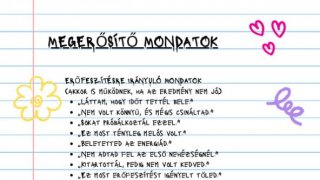 MEGERŐSÍTŐ MONDATOK
ERŐFESZÍTÉSRE IRÁNYULÓ MONDATOK
(AKKOR IS MŰKÖDNEK, HA AZ EREDMÉNY NEM JÓ)
• „LÁTTAM, HOGY IDŐT TETTÉL BELE."
• „NEM VOLT KÖNNYŰ, ÉS MÉGIS CSINÁLTAD."
• „SOKAT PRÓBÁLKOZTÁL EZZEL."
• „EZ MOST TÉNYLEG MELÓS VOLT."
• „BELETETTED AZ ENERGIÁD."
• „NEM ADTAD FEL AZ ELSŐ NEHÉZSÉGNÉL."
• „KITARTOTTÁL, PEDIG NEM VOLT KEDVED."
• „EZ MOST ERŐFESZÍTÉST IGÉNYELT TŐLED."